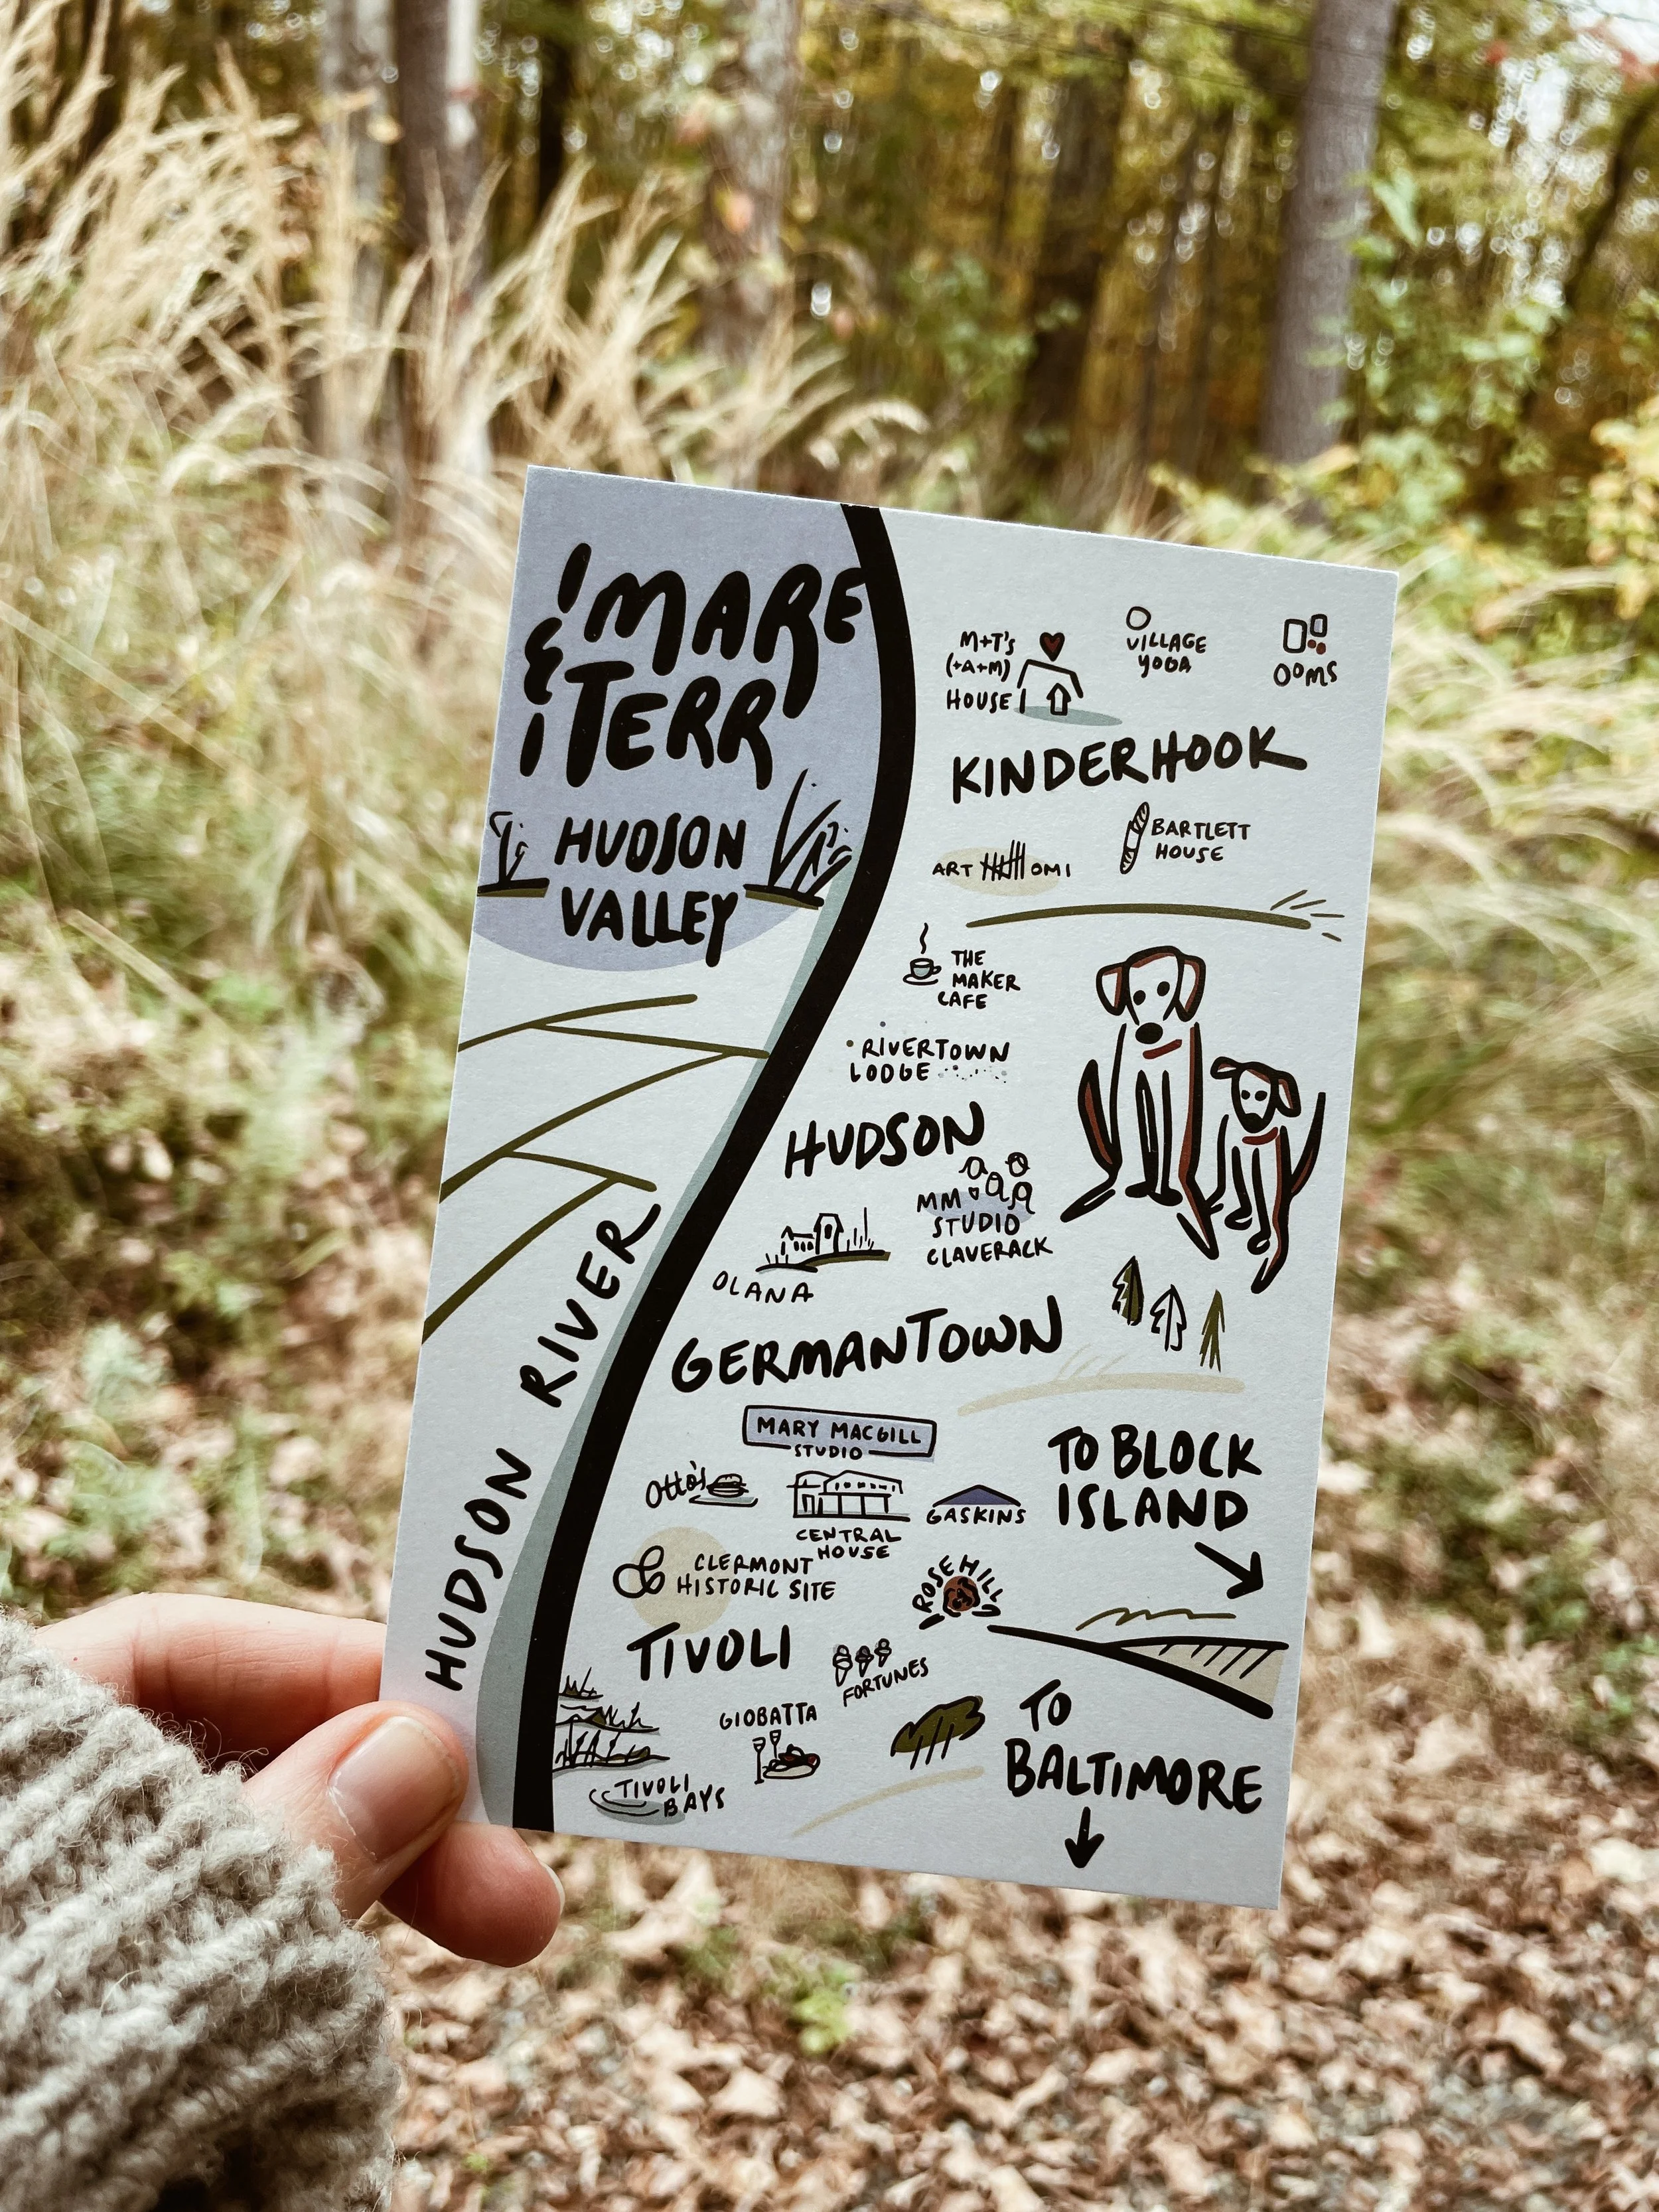 MARE
&
TERR
HUDSON
VALLEY
M+T's
(+A+M)
HOUSE
VILLAGE
YOGA
OOMS
KINDERHOOK
ART OMI
BARTLETT
HOUSE
THE
MAKER
CAFE
RIVERTOWN
LODGE
HUDSON
MM
STUDIO
CLAVERACK
OLANA
GERMANTOWN
HUDSON RIVER
MARY MACGILL
STUDIO
Otto's
CENTRAL
HOUSE
GASKINS
TO BLOCK
ISLAND
CLERMONT
HISTORIC SITE
ROSE HILL
TIVOLI
FORTUNES
GIOBATTA
TIVOLI
BAYS
TO
BALTIMORE